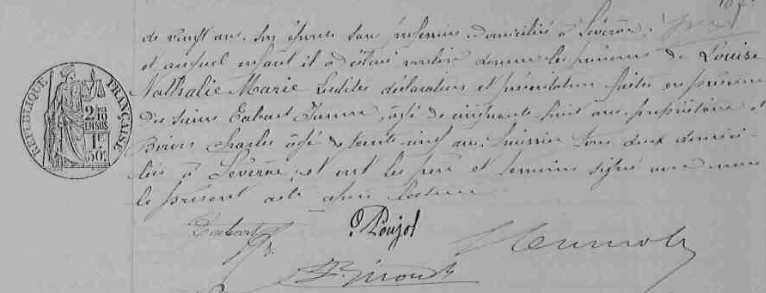 de vingt ans, son épouse sans profession domiciliés à Sévérac,
et auquel enfant il a déclaré vouloir donner les prénoms de Louise
Nathalie Marie Lesdites déclaration et présentation faites en présence
des sieurs Pierre, âgé de cinquante huit ans propriétaire et
Charles âgé de trente neuf ans, huissier tous deux domici-
liés à Sévérac, et ont les père et témoins signé avec nous
le présent acte après lecture
REPUBLIQUE FRANÇAISE
2/10 EN SUS
1F 50c
Poujol